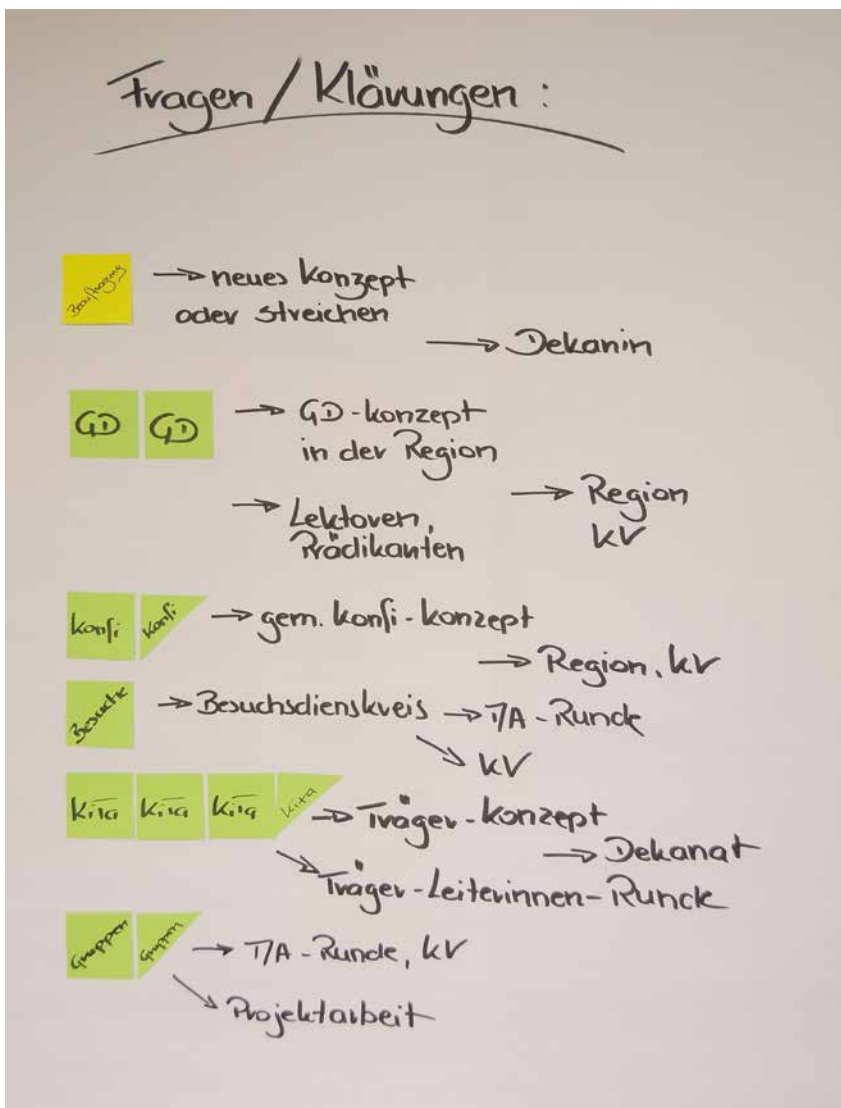 Fragen / Klärungen :
Beauftragung → neues Konzept
oder streichen
→ Dekanin
GD GD → GD-Konzept
in der Region
→ Lektoren,
Prädikanten
→ Region
KV
Konfi Konfi → gem. Konfi-Konzept
→ Region, KV
Besuche → Besuchsdienskreis → T/A-Runde
↘ KV
Kita Kita Kita Kita → Träger-Konzept
→ Dekanat
↘ Träger-Leiterinnen-Runde
Gruppen Gruppen → T/A-Runde, KV
↘ Projektarbeit